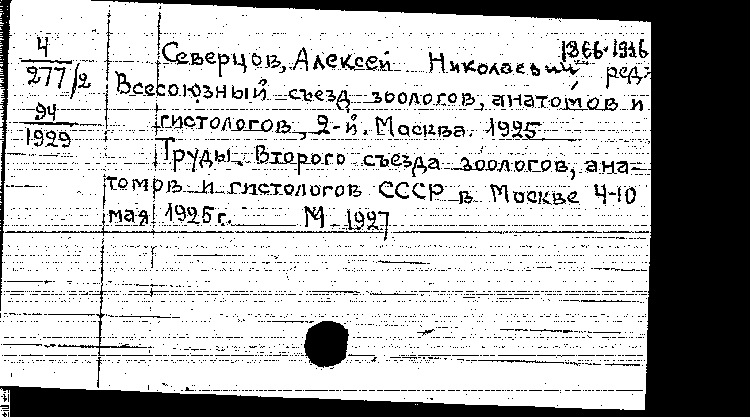 4
277/2
94
1929
1866-1916
Северцов, Алексей Николаевич, ред.
Всесоюзный съезд зоологов, анатомов и
гистологов, 2-й. Москва. 1925
Труды Второго съезда зоологов, ана-
томов и гистологов СССР в Москве 4-10
мая 1925 г. М 1927